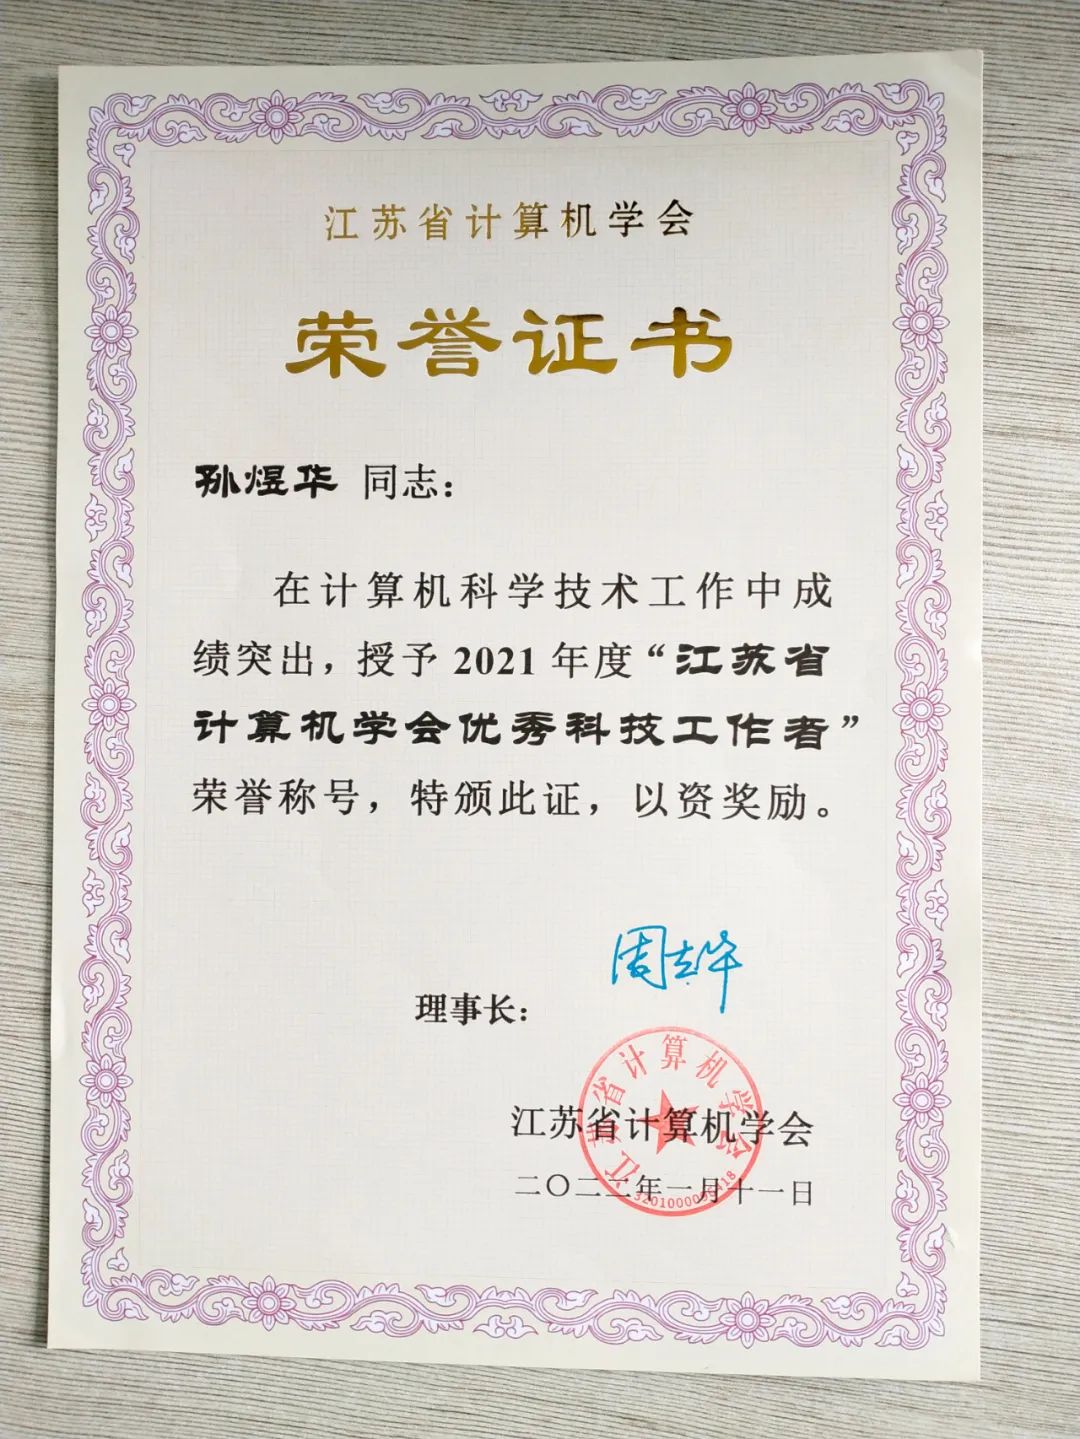 江苏省计算机学会
荣誉证书
孙煜华 同志：
在计算机科学技术工作中成
绩突出，授予 2021 年度“江苏省
计算机学会优秀科技工作者”
荣誉称号，特颁此证，以资奖励。
周志华
理事长：
江苏省计算机学会
江苏省计算机学会
二〇二二年一月十一日